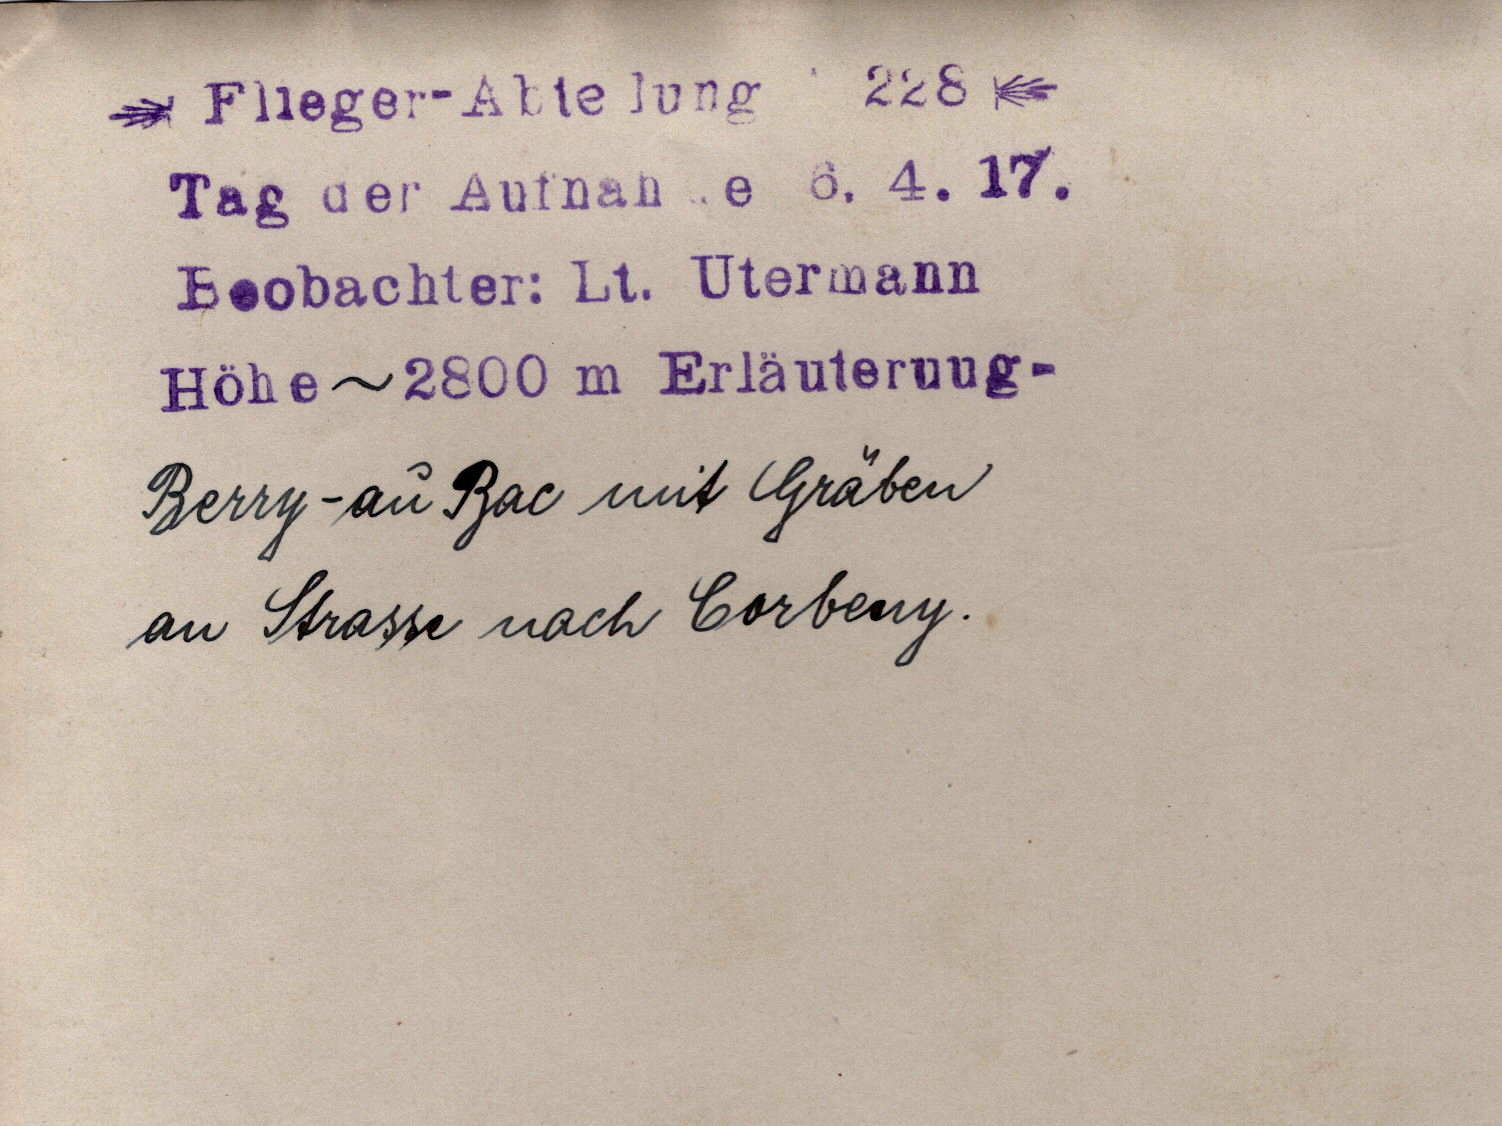 Flieger-Abteilung 228
Tag der Aufnahme 6. 4. 17.
Beobachter: Lt. Utermann
Höhe ~ 2800 m Erläuteruug-
Berry-au Bac mit Gräben
an Strasse nach Corbeny.